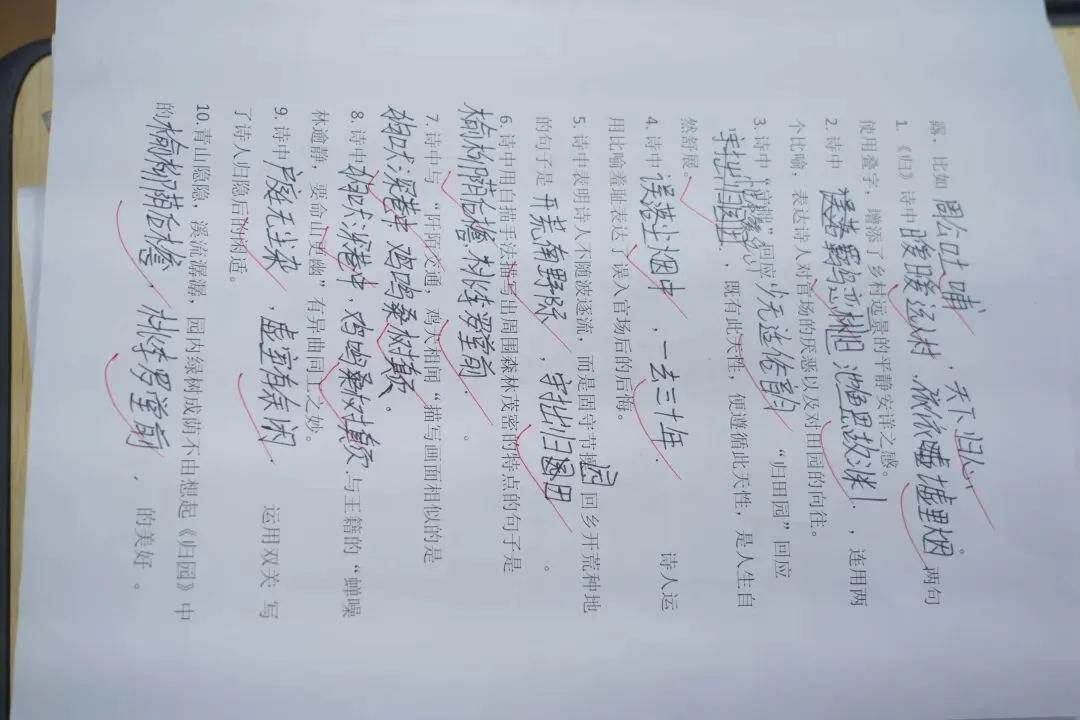 露，比如 周公吐哺，天下归心。
1. 《归》诗中 暧暧远村，依依墟里烟 两句
使用叠字，增添了乡村远景的平静安详之感。
2. 诗中 误落 羁鸟恋旧 池鱼思故渊 ，连用两
个比喻，表达诗人对官场的厌恶以及对田园的向往。
3. 诗中“守拙”回应 少无适俗韵 “归田园”回应
守拙归园田 ，既有此天性，便遵循此天性，是人生自
然舒展。
4. 诗中 误落尘烟中 ，一去三十年. 诗人运
用比喻羞耻表达了误入官场后的后悔。
5. 诗中表明诗人不随波逐流，而是固守节操 回乡开荒种地
的句子是 开荒南野际 ，守拙归园田 。
6. 诗中用白描手法描写出周围森林茂密的特点的句子是
榆柳荫后檐 桃李罗堂前 。
7. 诗中与 “阡陌交通，鸡犬相闻“描写画面相似的是
狗吠深巷中 鸡鸣桑树颠 。
8. 诗中 狗吠深巷中，鸡鸣桑树颠 与王籍的“蝉噪
林逾静，要命山更幽”有异曲同工之妙。
9. 诗中 户庭无尘杂 ，虚室有余闲 . 运用双关 写
了诗人归隐后的闲适。
10. 青山隐隐，溪流潺潺，园内绿树成荫不由想起《归园》中
的 榆柳荫后檐，桃李罗堂前 ，的美好 。